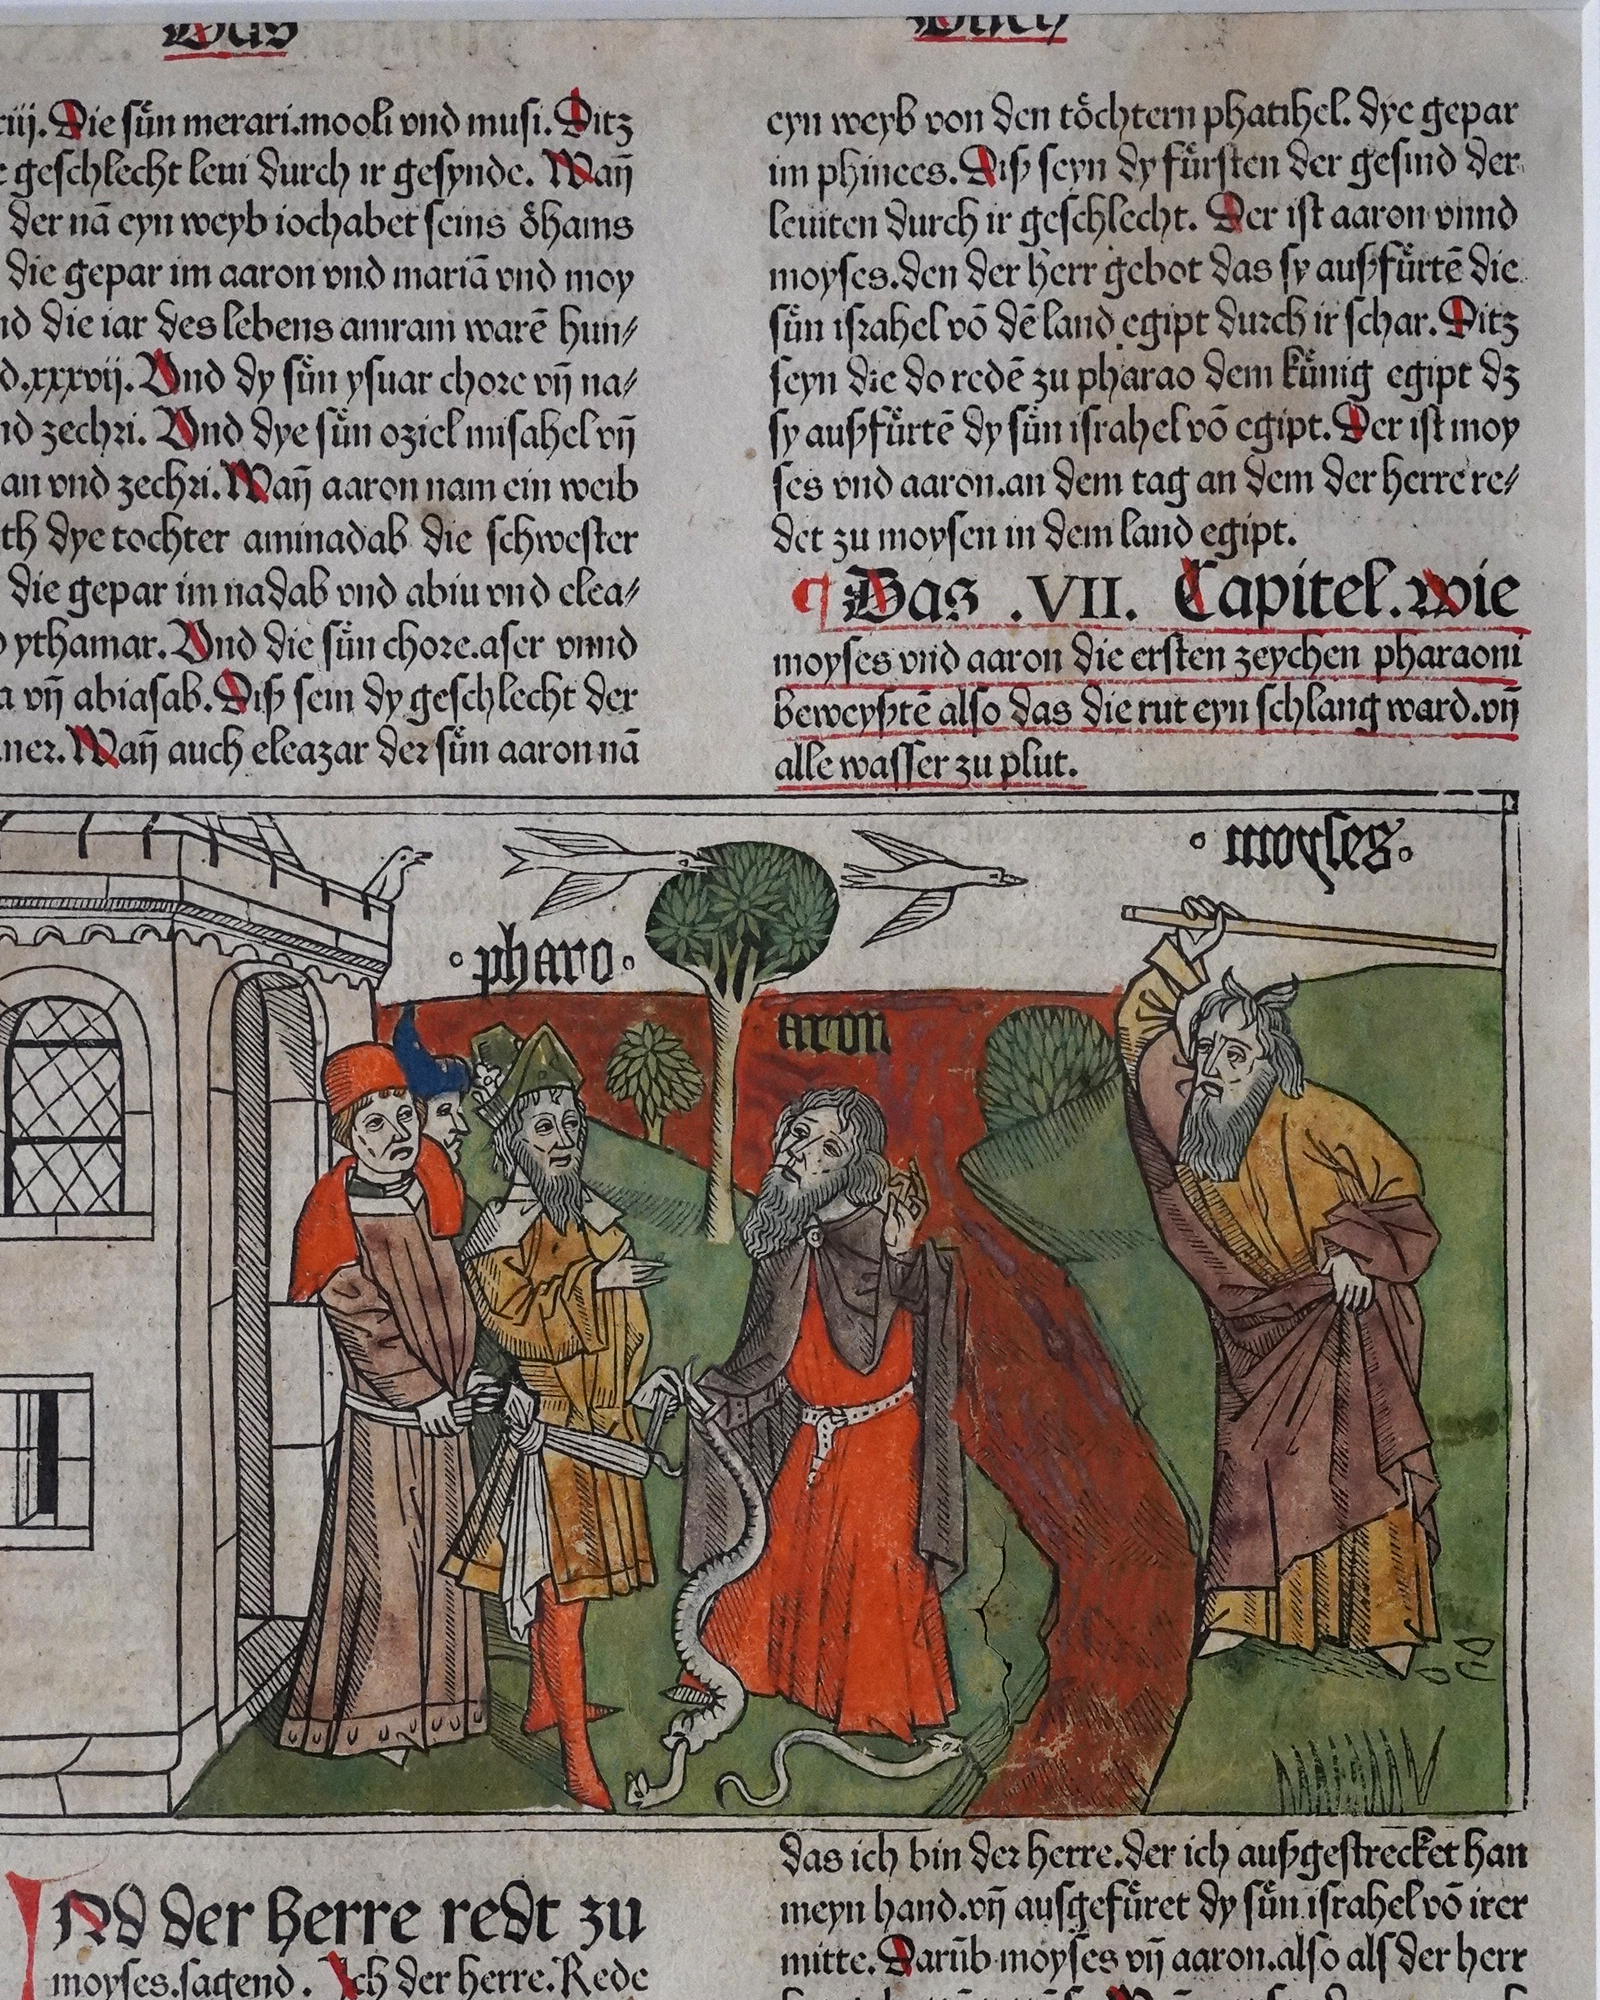 Das
Buch
iij. Die sűn merari.mooli vnd musi. Ditz
geschlecht leui durch ir gesynde. Wañ
der nã eyn weyb iochabet seins öhams
die gepar im aaron vnd mariã vnd moy
die iar des lebens amram warẽ hun⸗
d.xxxvij. Vnd dy sűn ysuar chore vñ na⸗
zechri. Vnd dye sűn oziel misahel vñ
an vnd zechri. Wañ aaron nam ein weib
th dye tochter aminadab die schwester
die gepar im nadab vnd abiu vnd elea⸗
ythamar. Vnd die sűn chore.aser vnnd
a vñ abiasab. Diß sein dy geschlecht der
ner. Wañ auch eleazar der sűn aaron nã
eyn weyb von den töchtern phatihel. dye gepar
im phinees. Diß seyn dy fűrsten der gesind der
leuiten durch ir geschlecht. Der ist aaron vnnd
moyses.den der herr gebot das sy außfűrtẽ die
sűn israhel võ dẽ land egipt durch ir schar. Ditz
seyn die do redẽ zu pharao dem kűnig egipt dz
sy außfűrtẽ dy sűn israhel võ egipt. Der ist moy
ses vnd aaron.an dem tag an dem der herre re⸗
det zu moysen in dem land egipt.
¶ Das .VII. Capitel. wie
moyses vnd aaron die ersten zeychen pharaoni
beweyßtẽ also das die rut eyn schlang ward.vñ
alle wasser zu plut.
moyses
pharo
aron
Nd der herre redt zu
moyses.sagend. Ich der herre. Rede
das ich bin der herre.der ich außgestrecket han
meyn hand.vñ ausgefűret dy sűn israhel võ irer
mitte. Darűb moyses vñ aaron.also als der herr